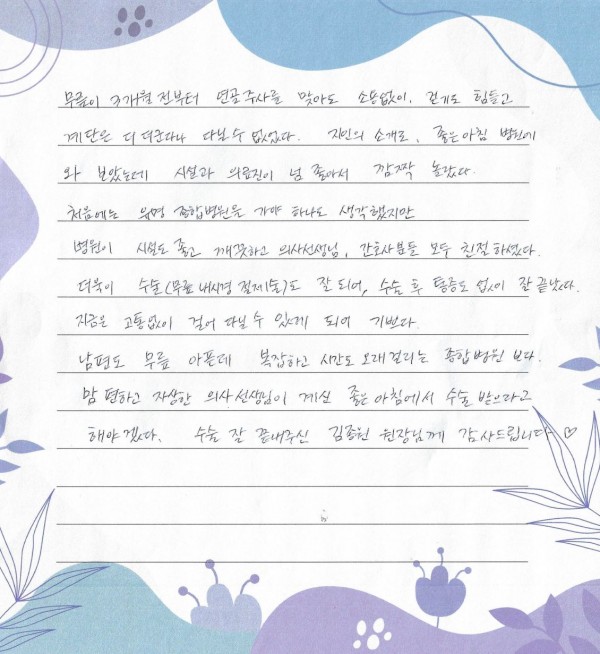 무릎이 3개월 전부터 연골주사를 맞아도 소용없이, 걷기도 힘들고
계단은 더더군다나 다닐수 없었다. 지인의 소개로, 좋은아침 병원에
와 보았는데 시설과 의료진이 넘 좋아서 깜짝 놀랐다.
처음에는 유명 종합병원을 가야 하나도 생각했지만
병원이 시설도 좋고 깨끗하고 의사선생님, 간호사분들 모두 친절하셨다.
더욱이 수술(무릎 내시경 절제술)도 잘 되어, 수술 후 통증도 없이 잘 끝났다.
지금은 고통없이 걸어 다닐 수 있게 되어 기쁘다
남편도 무릎 아픈데 복잡하고 시간도 오래걸리는 종합병원 보다.
맘 편하고 자상한 의사선생님이 계신 좋은아침에서 수술 받으라고
해야겠다. 수술 잘 끝내주신 김종원 원장님께 감사드립니다~ ♡